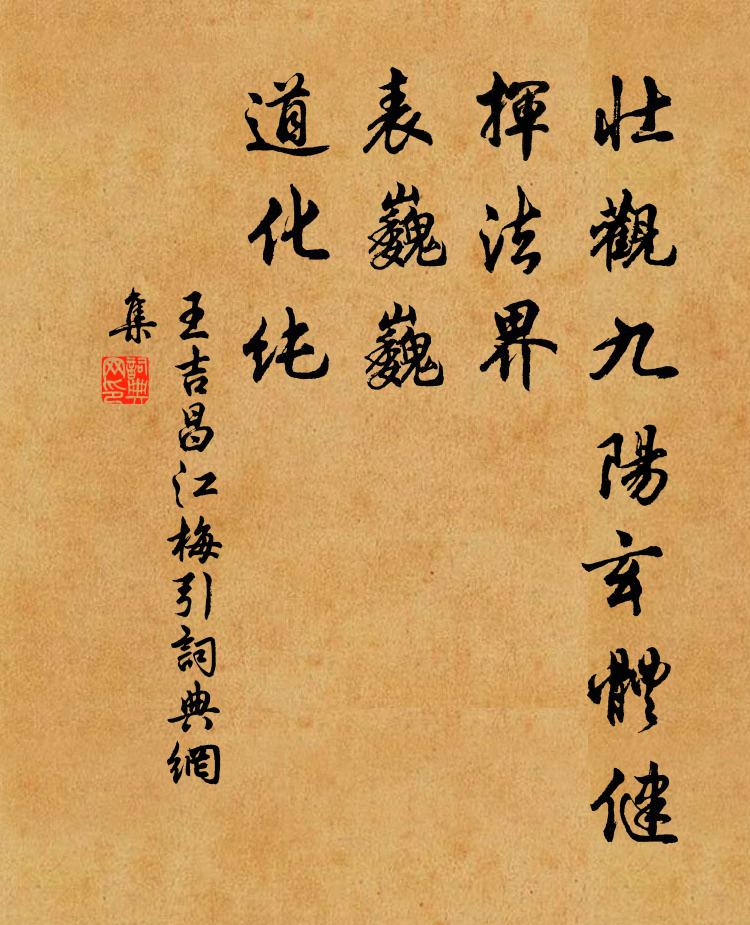 壯觀九陽玄體健
揮法界
表巍巍
道化純
王吉昌江梅引詞典網
集
詞典
网印